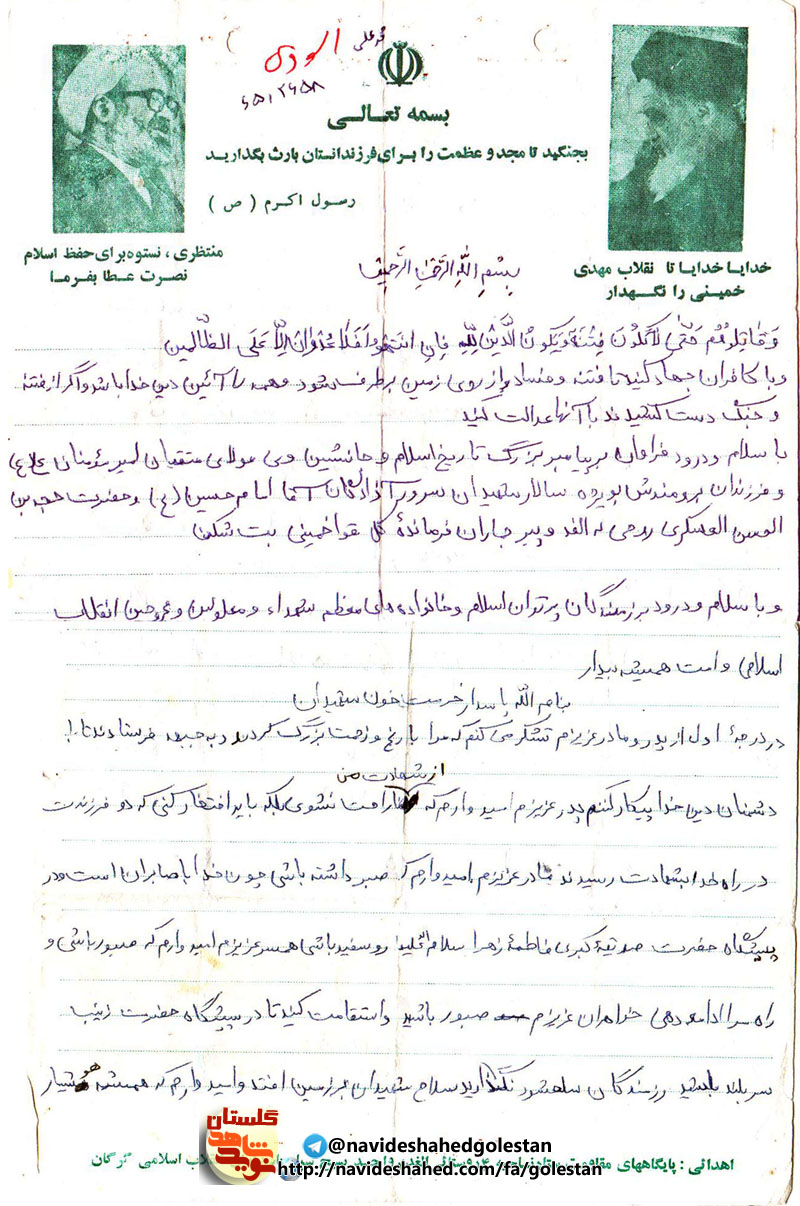 محمد علی
السودی
۶۵۱۲۶۵۸
بسمه تعالی
بجنگید تا مجد و عظمت را برای فرزندانتان بارث بگذارید
رسول اکرم ( ص )
منتظری ، نستوه برای حفظ اسلام
نصرت عطا بفرما
خدایا خدایا تا نقلاب مهدی
خمینی را نگهدار
بِسْمِ اللّهِ الرَّحْمنِ الرَّحیمِ
وَ قاتِلُوهُمْ حَتّی لا تَکُونَ فِتْنَةٌ وَ یَکُونَ الدّینُ لِلّهِ فَاِنِ انْتَهَوْا فَلا عُدْوانَ اِلّا عَلَی الظّالِمین
و با کافران جهاد کنید تا فتنه و فساد از روی زمین برطرف شود و همه را آئین دین خدا باشد و اگر از فتنه
و جنگ دست کشیدند با آنها عدالت کنید
با سلام و درود فراوان بر پیامبر بزرگ تاریخ اسلام و جانشین وی مولای متقیان امیر مؤمنان علی (ع)
و فرزندان برومندش بویژه سالار شهیدان سرور آزادگان آقا امام حسین (ع) و حضرت حجه بن
الحسن العسکری روحی له الفد و پیر جاران فرماندهٔ کل قوا خمینی بت شکن
و با سلام و درود بر رزمندگان پرتوان اسلام و خانواده های معظم شهداء و معلولین و مجروحین انقلاب
اسلامی و امت همیشه بیدار
بنام الله پاسدار حرمت خون شهیدان
در درجهٔ اول از پدر و مادر عزیزم تشکر می کنم که مرا با رنج و زحمت بزرگ کردند و به جبهه فرستادند تا با
دشمنان دین خدا پیکار کنم پدر عزیزم امیدوارم که از شهادت من ناراحت نشوی بلکه باید افتخار کنی که دو فرزندت
در راه خدا بشهادت رسیدند مادر عزیزم امیدوارم که صبر داشته باشی چون خدا با صابران است و در
پیشگاه حضرت صدیقهٔ کبری فاطمهٔ زهرا سلام الله علیها رو سفید باشی همسر عزیزم امیدوارم که صبور باشی و
راه مرا ادامه دهی خواهران عزیزم صبور باشید و استقامت کنید تا در پیشگاه حضرت زینب
سربلند باشید رزمندگان سلحشور نگذارید سلاح شهیدان بر زمین افتد و امیدوارم که همیشه هوشیار
گلستان
نوید شاهد
@navideshahedgolestan
http://navideshahed.com/fa/golestan
اهدائی : پایگاههای مقاومت اسلامی گرگان